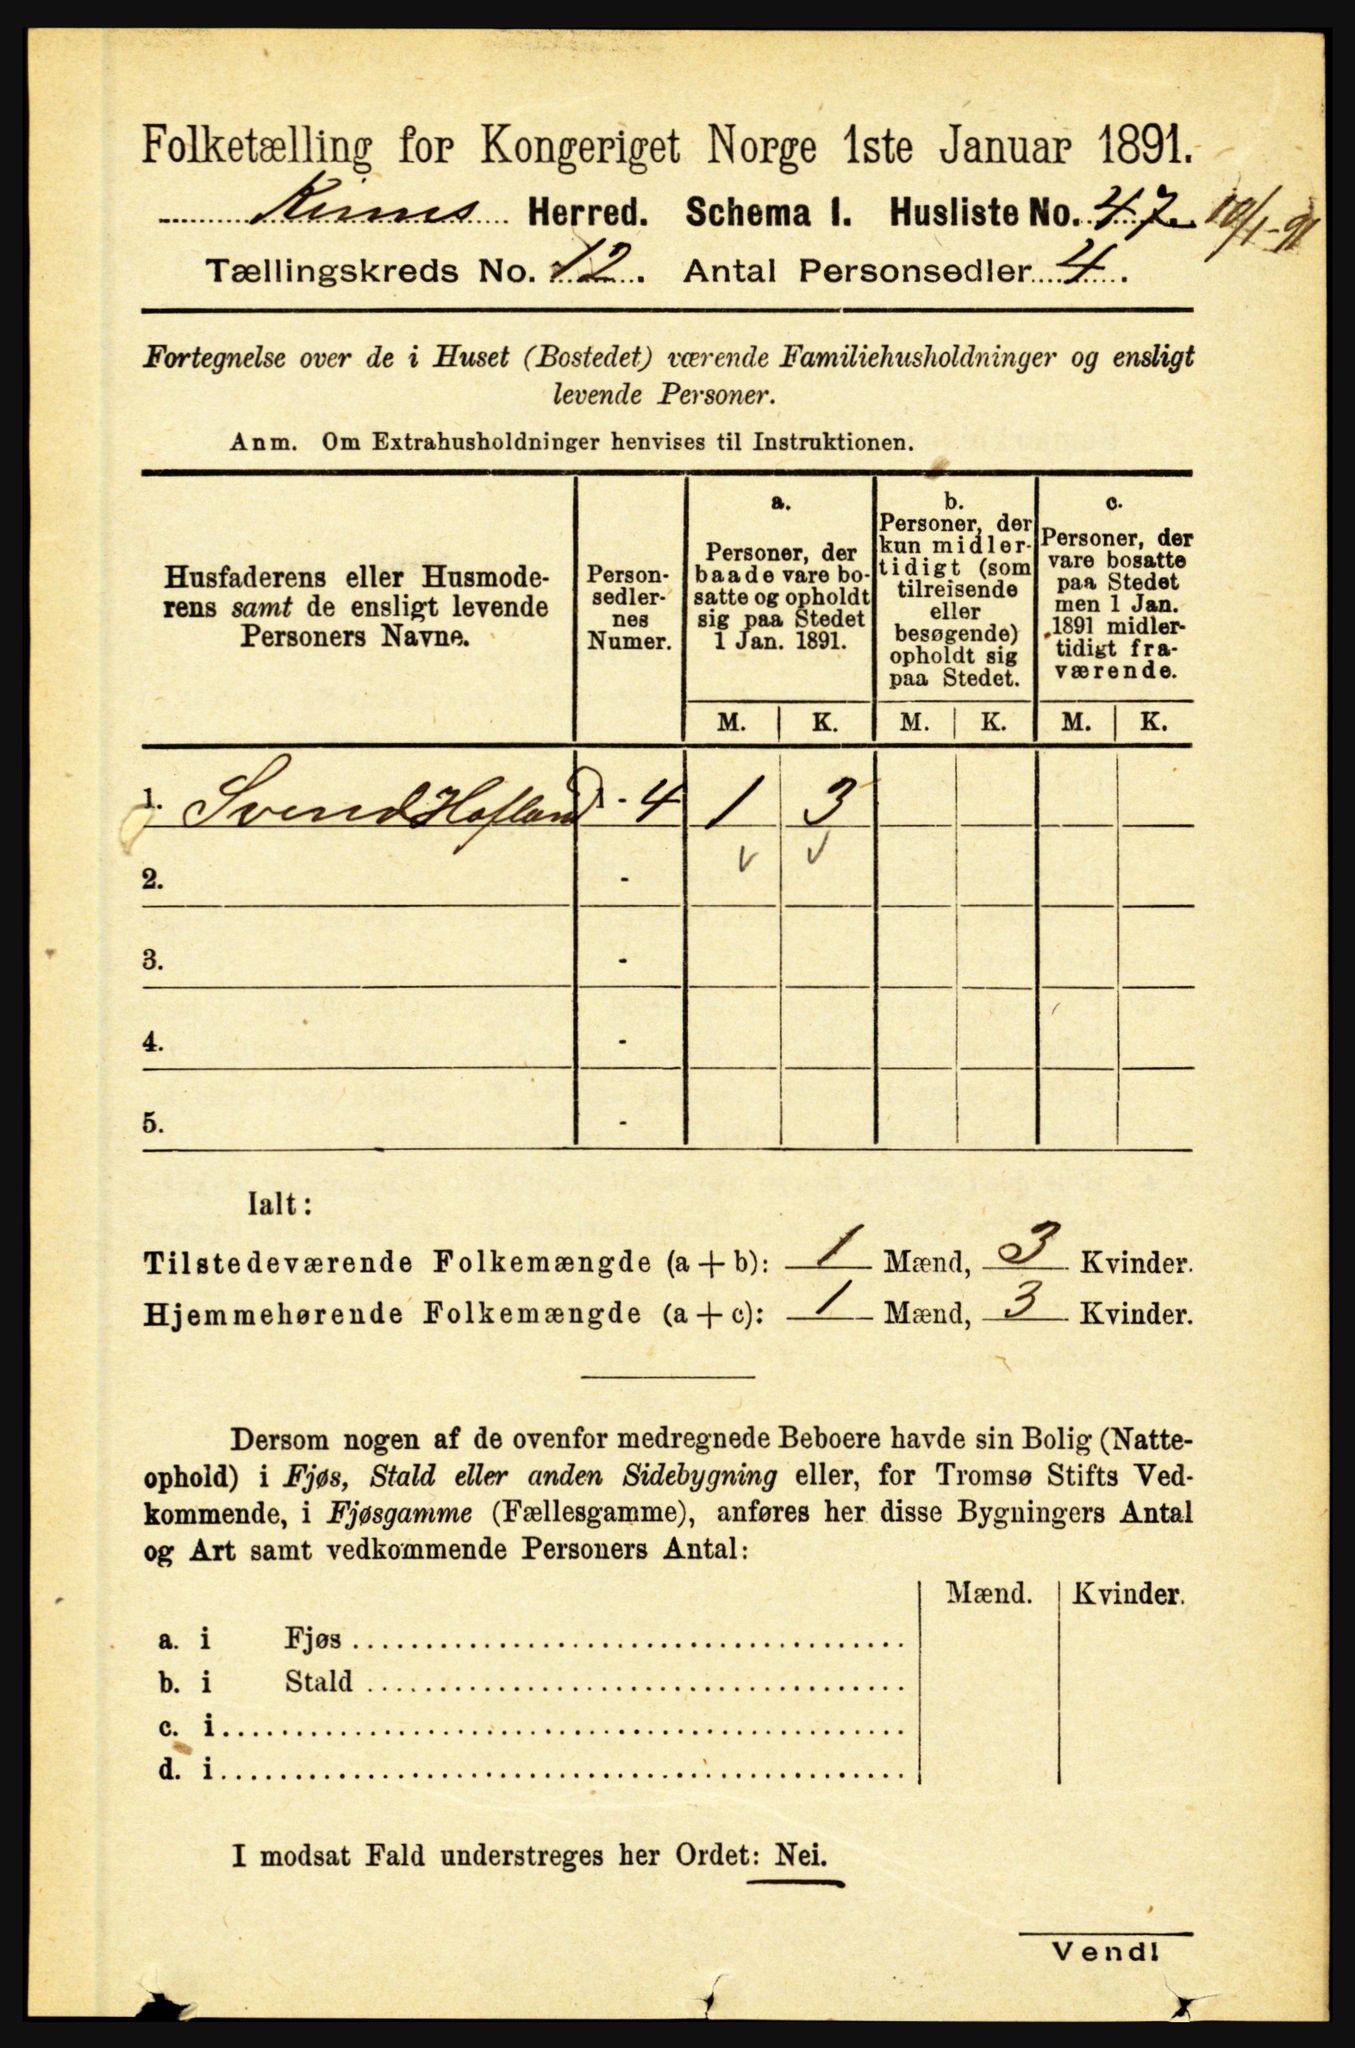 Folketælling for Kongeriget Norge 1ste Januar 1891.
Kinns Herred. Schema I. Husliste No. 47. 10/1-91
Tællingskreds No. 12. Antal Personsedler 4.
Fortegnelse over de i Huset (Bostedet) værende Familiehusholdninger og ensligt
levende Personer.
Anm. Om Extrahusholdninger henvises til Instruktionen.
Husfaderens eller Husmode-
rens samt de ensligt levende
Personers Navne.
Person-
sedler-
nes
Numer.
a.
Personer, der
baade vare bo-
satte og opholdt
sig paa Stedet
1 Jan. 1891.
b.
Personer, der
kun midler-
tidigt (som
tilreisende
eller
besøgende)
opholdt sig
paa Stedet.
c.
Personer, der
vare bosatte
paa Stedet
men 1 Jan.
1891 midler-
tidigt fra-
værende.
M. K. M. K. M. K.
1. Svend Hofland 1 - 4 1 3
2. -
3. -
4. -
5. -
Ialt:
Tilstedeværende Folkemængde (a + b): 1 Mænd, 3 Kvinder.
Hjemmehørende Folkemængde (a + c): 1 Mænd, 3 Kvinder.
Dersom nogen af de ovenfor medregnede Beboere havde sin Bolig (Natte-
ophold) i Fjøs, Stald eller anden Sidebygning eller, for Tromsø Stifts Ved-
kommende, i Fjøsgamme (Fællesgamme), anføres her disse Bygningers Antal
og Art samt vedkommende Personers Antal:
Mænd. Kvinder.
a. i Fjøs
b. i Stald
c. i
d. i
I modsat Fald understreges her Ordet: Nei.
Vend!